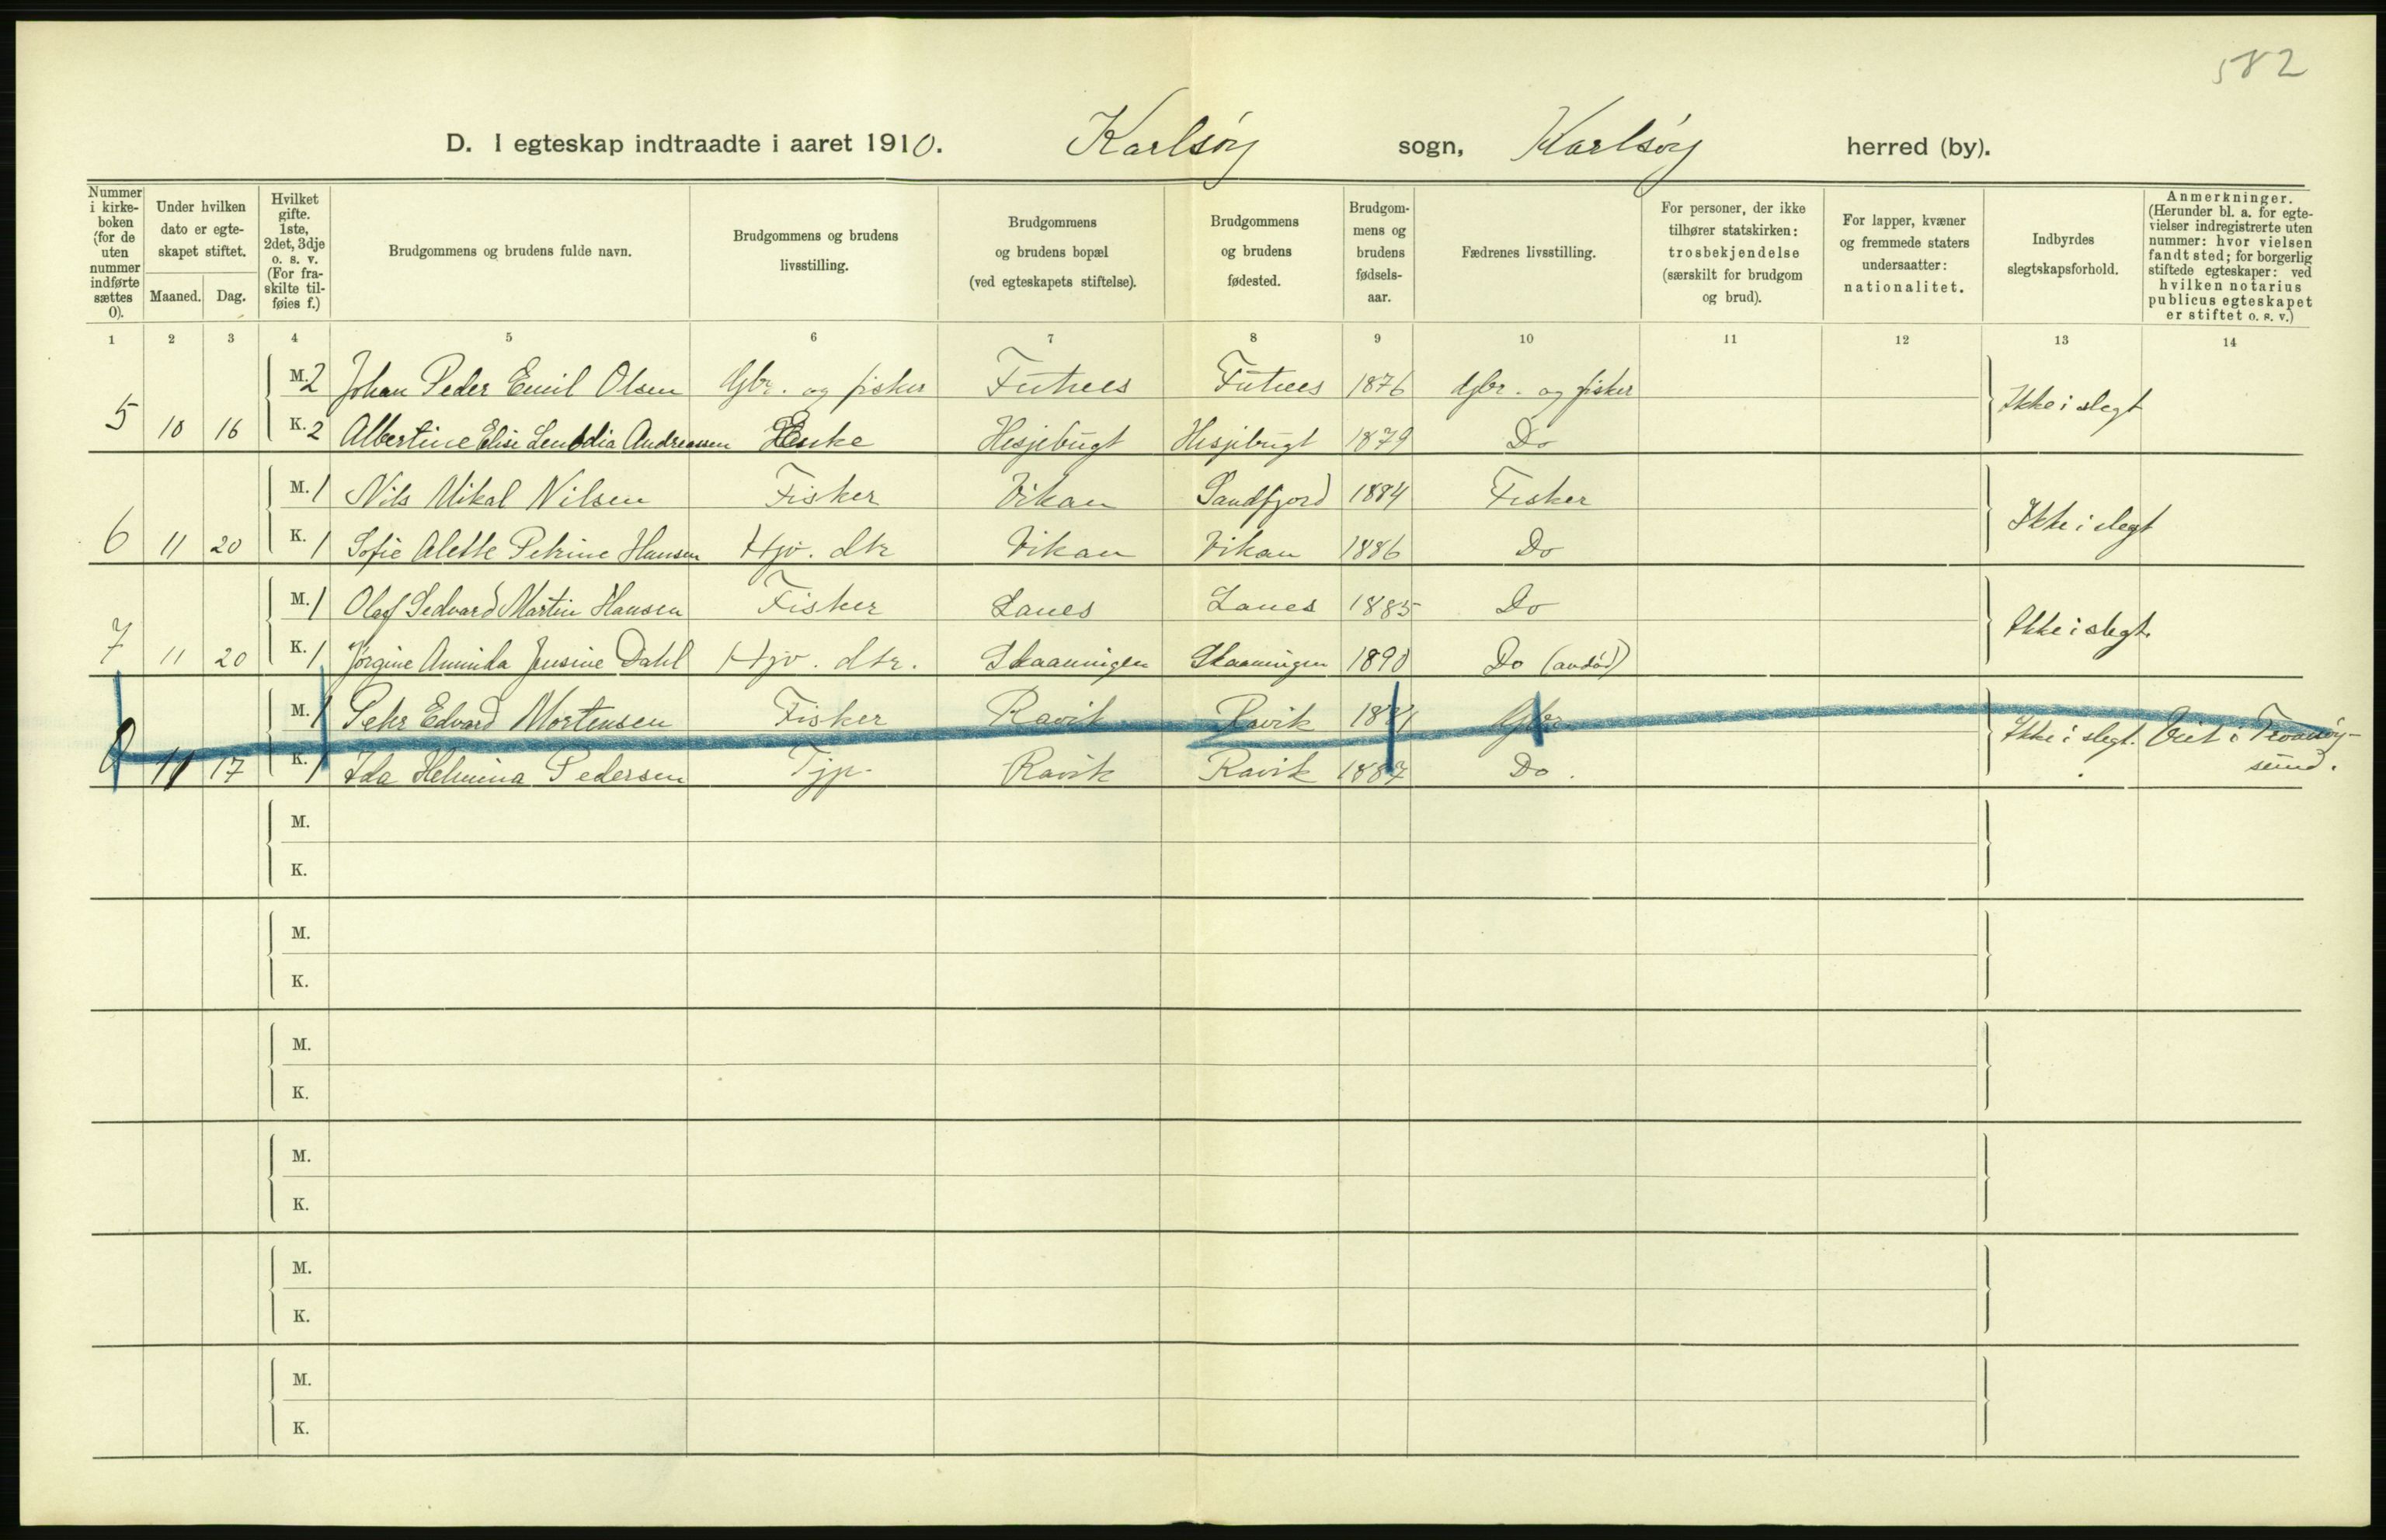 582
D. I egteskap indtraadte i aaret 1910. Karlsøy sogn, Karlsøy herred (by).
Nummer i kirke-boken (for de uten nummer indførte sættes 0). Under hvilken dato er egte-skapet stiftet. Maaned. Dag. Hvilket gifte. 1ste, 2det, 3dje o. s. v. (For fra-skilte til-føies f.) Brudgommens og brudens fulde navn. Brudgommens og brudens livsstilling. Brudgommens og brudens bopæl (ved egteskapets stiftelse). Brudgommens og brudens fødested. Brudgom-mens og brudens fødsels-aar. Fædrenes livsstilling. For personer, der ikke tilhører statskirken: trosbekjendelse (særskilt for brudgom og brud). For lapper, kvæner og fremmede staters undersaatter: nationalitet. Indbyrdes slegtskapsforhold. Anmerkninger. (Herunder bl. a. for egte-vielser indregistrerte uten nummer: hvor vielsen fandt sted; for borgerlig stiftede egteskaper: ved hvilken notarius publicus egteskapet er stiftet o. s. v.)
1 2 3 4 5 6 7 8 9 10 11 12 13 14
M. 2 Johan Peder Emil Olsen Gbr. og fisker Futnes Futnes 1876 Gbr. og fisker
5 10 16 K. 2 Albertine Elise Andreassen Enke Hesjebugt Hesjebugt 1879 Do Ikke i slegt
M. 1 Nils Mikal Nilsen Fisker Vikan Sandfjord 1884 Fisker
6 11 20 K. 1 Sofie Alette Petrine Hansen Hjv. dtr Vikan Vikan 1886 Do Ikke i slegt
M. 1 Olaf Sedvard Martin Hansen Fisker Lanes Lanes 1885 Do
7 11 20 K. 1 Jørgine Jensine Dahl Hjv. dtr. Skaaningen Skaaningen 1890 Do (avdød) Ikke i slegt.
M. 1 Peder Edvard Mortensen Fisker Ravik Ravik 1881 Gbr.
0 11 17 K. 1 Ida Helmina Pedersen Tjp. Ravik Ravik 1887 Do. Ikke i slegt. Viet i Tromsøy-
sund.
M.
K.
M.
K.
M.
K.
M.
K.
M.
K.
M.
K.